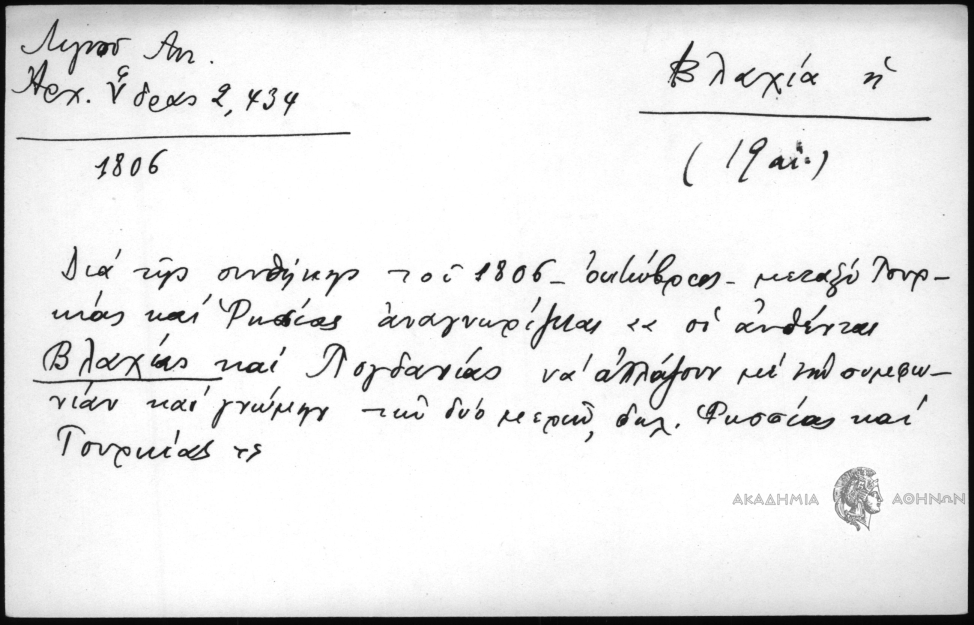 Λιγνοῦ Αντ.
Ἀρχ. Ὕδρας 2, 434
1806
Βλαχία ἡ
(19 αἰ.)
Διά τῆς συνθήκης τοῦ 1806 - ὀκτώβριος - μεταξύ Τουρ-
κίας καί Ρωσίας ἀναγνωρίζεται << οἱ αὐθένται
Βλαχίας καί Πογδανίας νά ἀλλάζουν μέ τήν συμφω-
νίαν καί γνώμην τῶν δύο μερῶν, δηλ. Ρωσσίας καί
Τουρκίας >>
ΑΚΑΔΗΜΙΑ ΑΘΗΝΩΝ